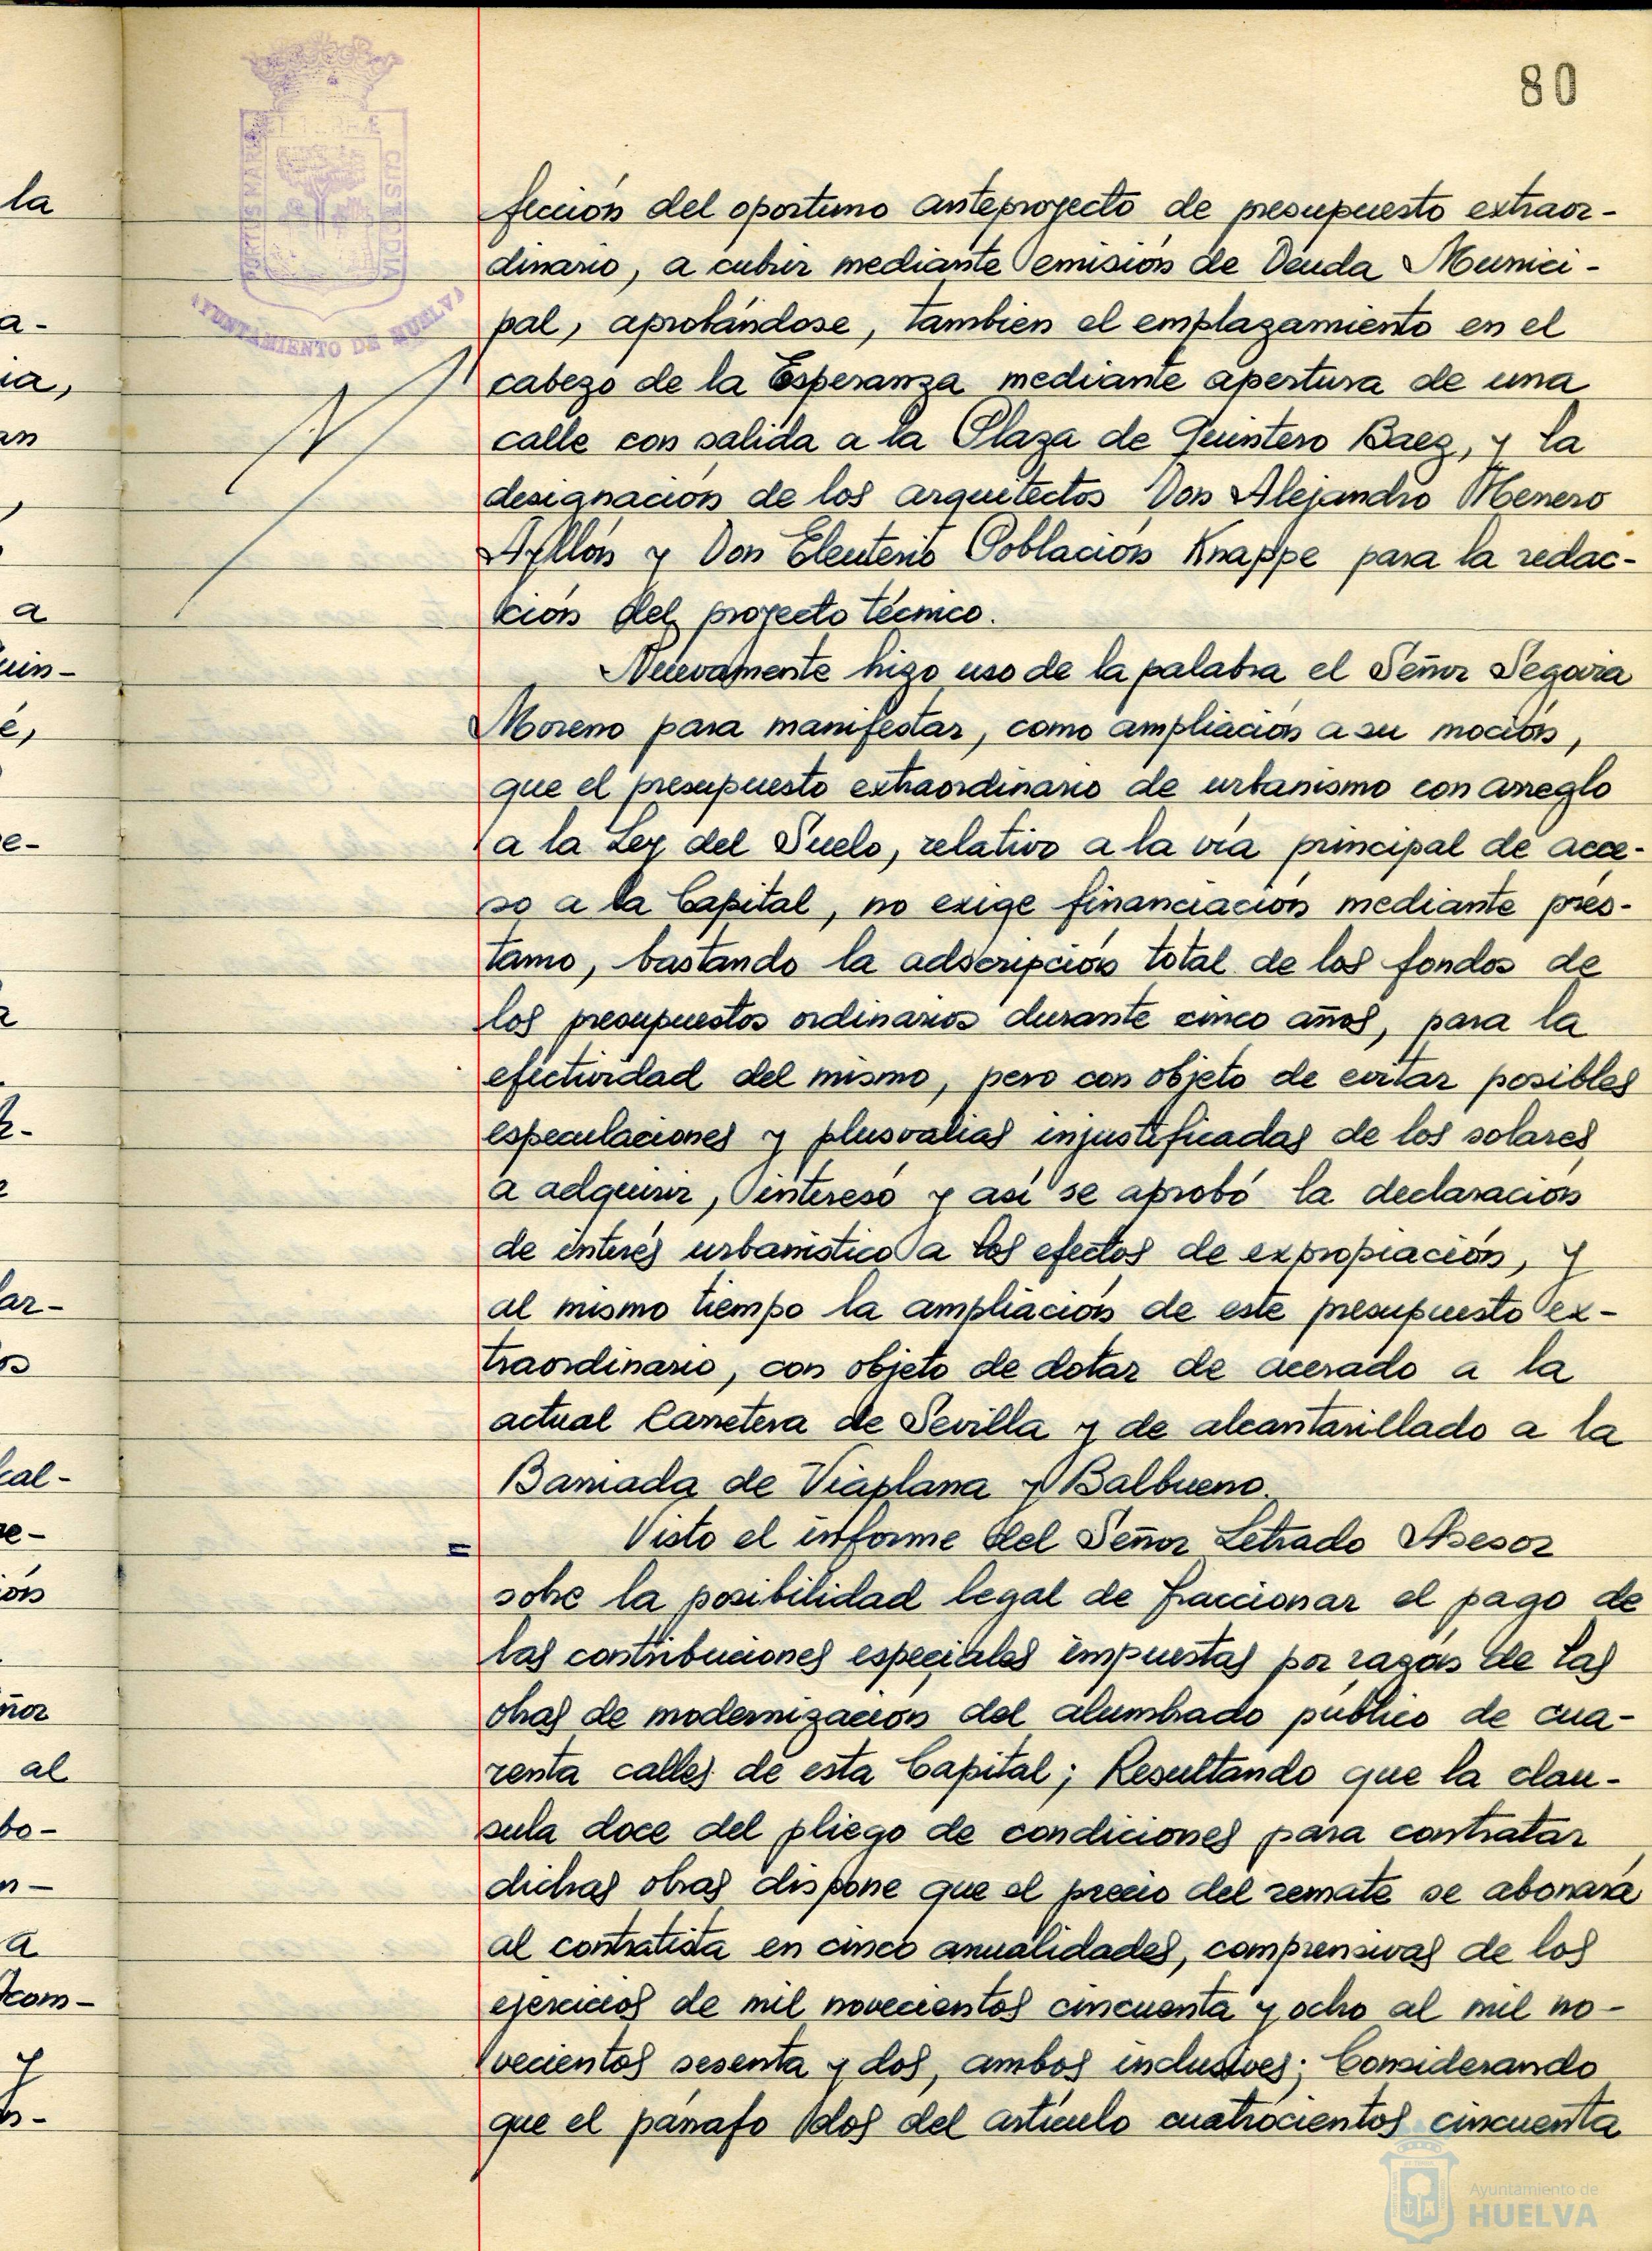 80
ET TERRÆ
PORTUS MARIS
CUSTODIA
AYUNTAMIENTO DE HUELVA
fección del oportuno anteproyecto de presupuesto extraor-
dinario, a cubrir mediante emisión de Deuda Munici-
pal, aprobándose, tambien el emplazamiento en el
cabezo de la Esperanza mediante apertura de una
calle con salida a la Plaza de Quintero Baez, y la
designación de los arquitectos Don Alejandro Herrero
Ayllón y Don Eleuterio Población Knappe para la redac-
ción del proyecto técnico.
Nuevamente hizo uso de la palabra el Señor Segovia
Moreno para manifestar, como ampliación a su moción,
que el presupuesto extraordinario de urbanismo con arreglo
a la Ley del Suelo, relativo a la vía principal de acce-
so a la Capital, no exige financiación mediante prés-
tamo, bastando la adscripción total de los fondos de
los presupuestos ordinarios durante cinco años, para la
efectividad del mismo, pero con objeto de evitar posibles
especulaciones y plusvalias injustificadas de los solares
a adquirir, interesó y así se aprobó la declaración
de interés urbanistico a los efectos de expropiación, y
al mismo tiempo la ampliación de este presupuesto ex-
traordinario, con objeto de dotar de acerado a la
actual Carretera de Sevilla y de alcantarillado a la
Barriada de Viaplana y Balbueno.
= Visto el informe del Señor Letrado Asesor
sobre la posibilidad legal de fraccionar el pago de
las contribuciones especiales impuestas por razón de las
obras de modernización del alumbrado público de cua-
renta calles de esta Capital; Resultando que la clau-
sula doce del pliego de condiciones para contratar
dichas obras dispone que el precio del remate se abonará
al contratista en cinco anualidades, comprensivas de los
ejercicios de mil novecientos cincuenta y ocho al mil no-
vecientos sesenta y dos, ambos inclusives; Considerando
que el párrafo dos del artículo cuatrocientos cincuenta
Ayuntamiento de
HUELVA